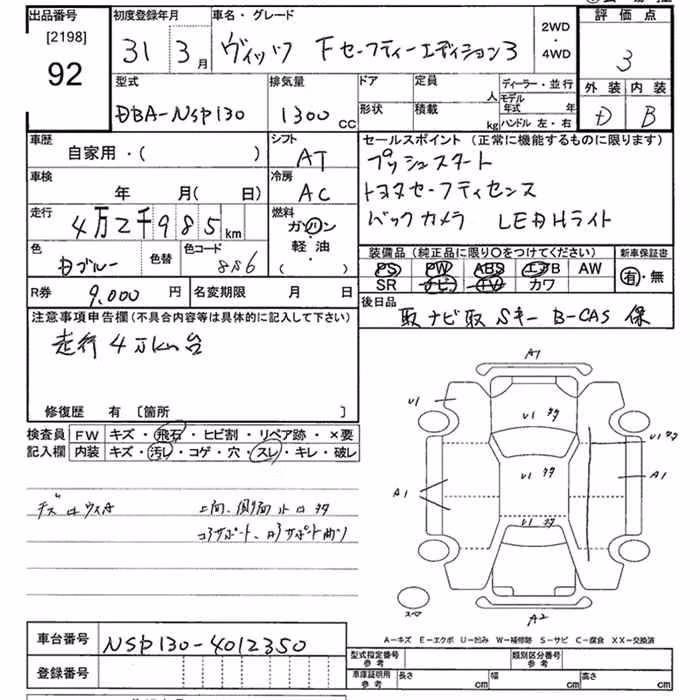 出品番号 初度登録年月 車名・グレード 2WD・4WD 評価点
[2198]
92 31 3月 ヴィッツ FセーフティーエディションⅢ 3
型式 排気量 ドア 定員 人 ディーラー・並行 外装 内装
DBA-NSP130 1300cc 形状 積載 kg モデル年式 年 ハンドル 左・右 D B
車歴 シフト セールスポイント (正常に機能するものに限ります)
自家用・( ) AT プッシュスタート
車検 冷房
年 月( 日) AC トヨタセーフティセンス
走行 燃料
4万2千985km ガソリン バックカメラ LEDHライト
軽・油
・( )
色 色替 色コード 装備品 (純正品に限り○をつけてください) 新車保証書
Dブルー 8S6 PS PW ABS エアB AW 有・無
SR ナビ TV カワ
R券 9,000円 名変期限 月 日 後日品
取 ナビ取 Sキー B-CAS 保
注意事項申告欄(不具合内容等は具体的に記入して下さい)
走行4万km台
修復歴 有 [箇所 ]
検査員 FW キズ・飛石・ヒビ割・リペア跡・×要
記入欄 内装 キズ・汚レ・コゲ・穴・スレ・キレ・破レ
A1
U1 U1
A1 U1 A1
U1
スペア A2
A-キズ E-エクボ U-凹み W-補修跡 S-サビ C-腐食 XX-交換済
車台番号 NSP130-4012350
登録番号
型式指定番号 参考 類別区分番号 参考
車庫証明用 参考 長さ cm 幅 cm 高さ cm